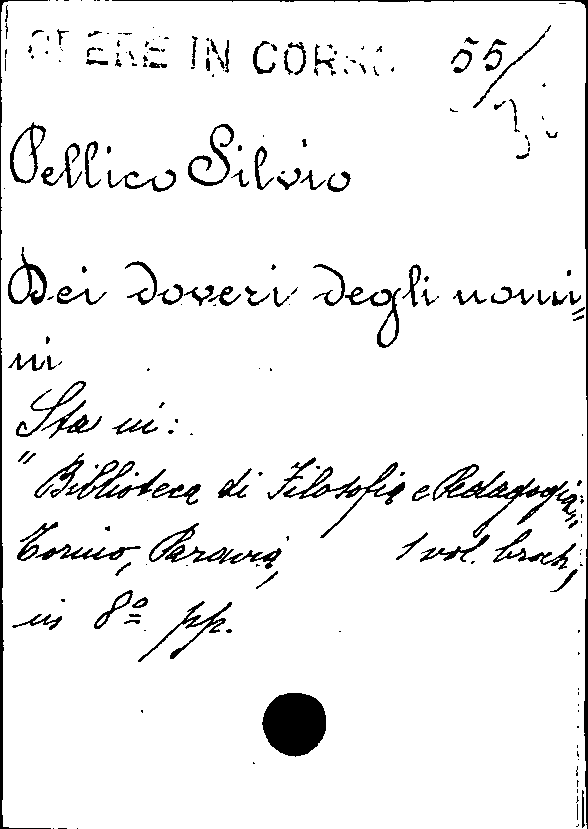 OPERE IN CORSO 55/
Pellico Silvio
Dei doveri degli uomi=
ni
Sta in:
"Biblioteca di Filosofia e Pedagogia"
Torino, Paravia, 1 vol. broch,
in 8º pp.